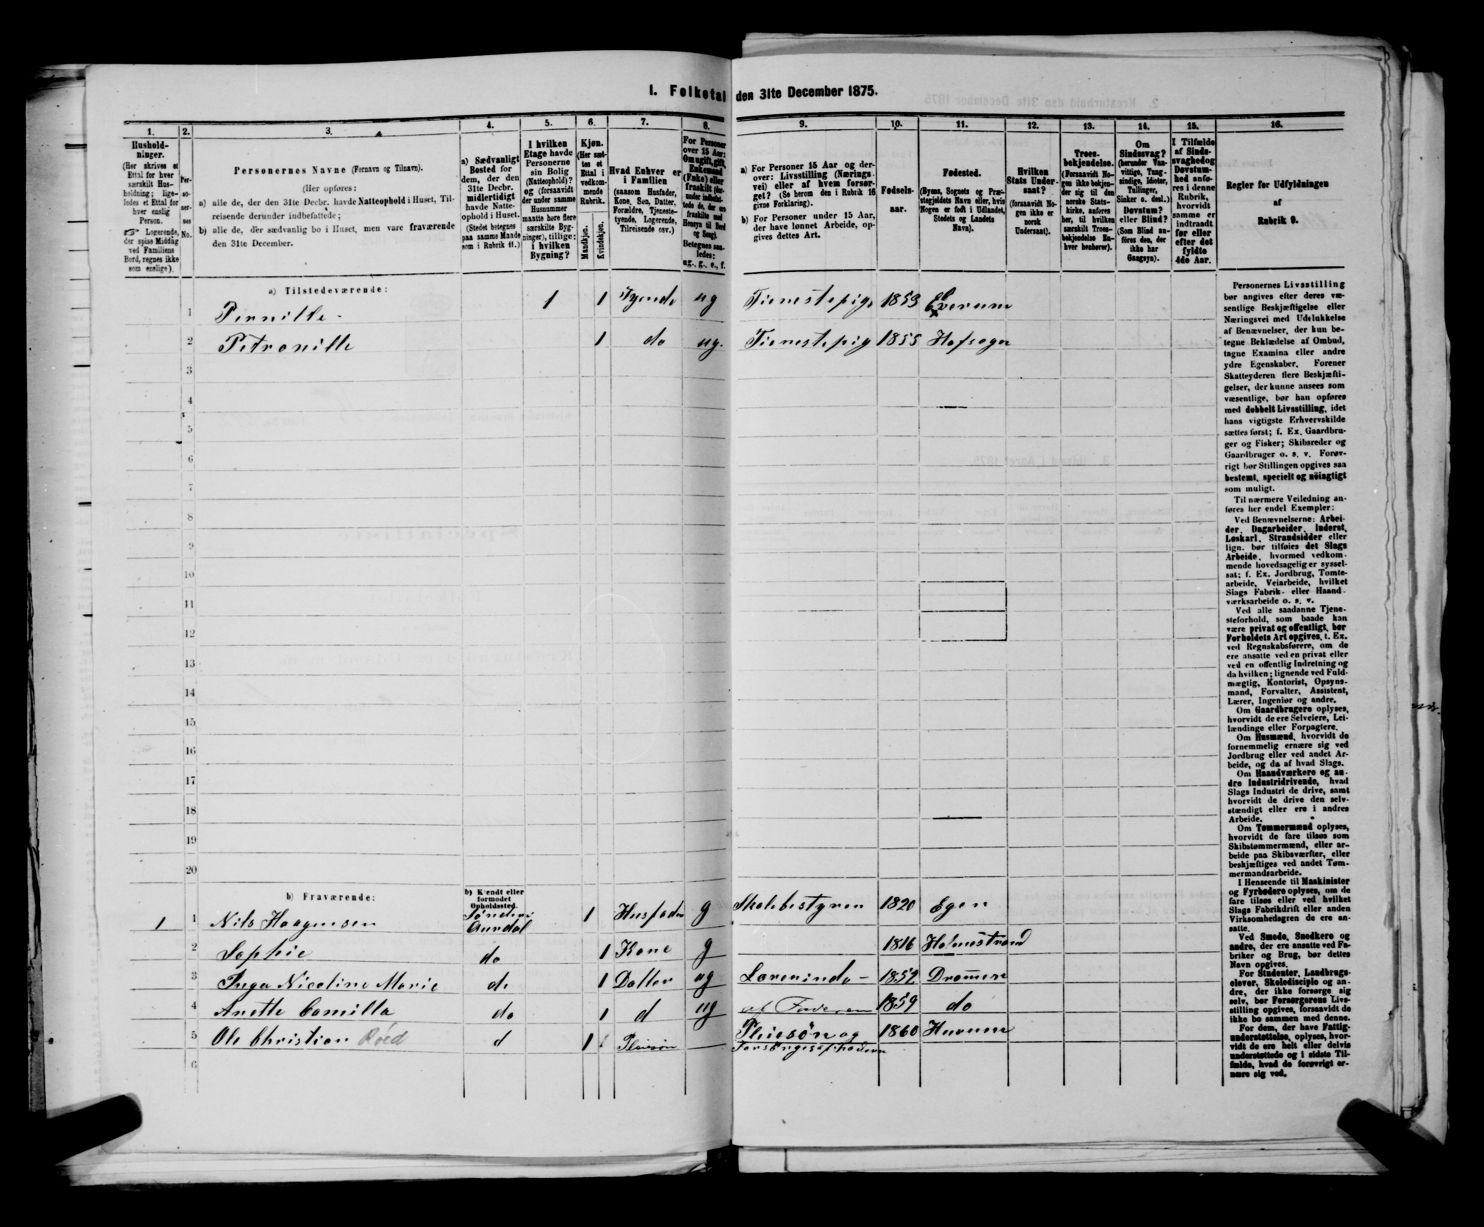 1. Folketal den 31te December 1875.
1. 2. 3. 4. 5. 6. 7. 8. 9. 10. 11. 12. 13. 14. 15. 16.
Hushold-
ninger.
(Her skrives et
Ettal for hver
særskilt Hus-
holdning; lige-
ledes et Ettal for
hver enslig
Person.
☞ Logerende,
der spise Middag
ved Familiens
Bord, regnes ikke
som enslige).
Per-
so-
ner-
nes
No.
Personernes Navne (Fornavn og Tilnavn).
(Her opføres:
a) alle de, der den 31te Decbr. havde Natteophold i Huset, Til-
reisende derunder indbefattede;
b) alle de, der sædvanlig bo i Huset, men vare fraværende
den 31te December.
a) Sædvanligt
Bosted for
dem, der den
31te Decbr.
midlertidigt
havde Natte-
ophold i Huset.
(Stedet betegnes
paa samme Maade
som i Rubrik 11.)
I hvilken
Etage havde
Personerne
sin Bolig
(Natteophold)?
og (forsaavidt
der under samme
Husnummer
maatte høre flere
særskilte Byg-
ninger), tillige:
i hvilken
Bygning?
Kjøn.
(Her sæt-
tes et
Ettal i
vedkom-
mende
Rubrik.
Mandkjøn.
Kvindekjøn.
Hvad Enhver er
i Familien
(saasom Husfader,
Kone, Søn, Datter,
Forældre, Tjeneste-
tyende, Logerende,
Tilreisende osv.)
For Personer
over 15 Aar:
Om ugift, gift,
Enkemand
(Enke) eller
fraskilt (der-
under indbefat-
tede de, der ere
fraskilte med
Hensyn til Bord
og Seng).
Betegnes saa-
ledes:
ug., g., e., f.
a) For Personer 15 Aar og der-
over: Livsstilling (Nærings-
vei) eller af hvem forsør-
get? (Se herom den i Rubrik 16
givne Forklaring).
b) For Personer under 15 Aar,
der have lønnet Arbeide, op-
gives dettes Art.
Fødsels-
aar.
Fødested.
(Byens, Sognets og Præ-
stegjeldets Navn eller, hvis
Nogen er født i Udlandet,
Stedets og Landets
Navn).
Hvilken
Stats Under-
saat?
(forsaavidt No-
gen ikke er
norsk
Undersaat).
Troes-
bekjendelse.
(Forsaavidt No-
gen ikke bekjen-
der sig til den
norske Stats-
kirke, anføres
her, til hvilken
særskilt Troes-
bekjendelse En-
hver henhører).
Om
Sindssvag?
(herunder Van-
vittige, Tung-
sindige, Idioter,
Tullinger,
Sinker o. desl.)
Døvstum?
eller Blind?
(Som Blind an-
føres den, der
ikke har
Gangsyn).
I Tilfælde
af Sinds-
svaghed og
Døvstum-
hed anfø-
res i denne
Rubrik,
hvorvidt
samme er
indtraadt
før eller
efter det
fyldte
4de Aar.
Regler for Udfyldningen
af
Rubrik 9.
a) Tilstedeværende:
1 Pernille - 1 1 Tyende ug Tienestepige 1853 Elverum
2 Petronille 1 do ug. Tienestepig 1855 Hafsogn
3
4
5
6
7
8
9
10
11
12
13
14
15
16
17
18
19
20
b) Fraværende:
b) Kjendt eller
formodet
Opholdssted.
1 1 Nils Haagensen Søndere Aurdal 1 Husfader g Skolebestyrer 1820 Egen
2 Sophie do 1 Kone g 1816 Holmestrand
3 Inga Nicoline Marie do 1 Datter ug Lærerinde - 1852 Drammen
4 Anette Camilla do 1 d ug 1859 do
5 Ole Christian Röed d 1 Pleiesøn Pleiesøn og 1860 Hurum
Forsørges af Faderen
6
Personernes Livsstilling
bør angives efter deres væ-
sentlige Beskjæftigelse eller
Næringsvei med Udelukkelse
af Benævnelser, der kun be-
tegne Beklædelse af Ombud,
tagne Examina eller andre
ydre Egenskaber. Forener
Skatteyderen flere Beskjæfti-
gelser, der kunne ansees som
væsentlige, bør han opføres
med dobbelt Livsstilling, idet
hans vigtigste Erhvervskilde
sættes først; f. Ex. Gaardbru-
ger og Fisker; Skibsreder og
Gaardbruger o. s. v. Forøv-
rigt bør Stillingen opgives saa
bestemt, specielt og nøiagtigt
som muligt.
Til nærmere Veiledning an-
føres her endel Exempler:
Ved Benævnelserne: Arbei-
der, Dagarbeider, Inderst,
Løskarl, Strandsidder eller
lign. bør tilføies det Slags
Arbeide, hvormed vedkom-
mende hovedsagelig er syssel-
sat; f. Ex. Jordbrug, Tomte-
arbeide, Veiarbeide, hvilket
Slags Fabrik- eller Haand-
værksarbeide o. s. v.
Ved alle saadanne Tjene-
steforhold, som baade kan
være privat og offentligt, bør
Forholdets Art opgives, t. Ex.
ved Regnskabsførere, om de
ere ansatte ved en privat eller
ved en offentlig Indretning og
da hvilken; lignende ved Fuld-
mægtig, Kontorist, Opsyns-
mand, Forvalter, Assistent,
Lærer, Ingeniør og andre.
Om Gaardbrugere oplyses,
hvorvidt de ere Selveiere, Lei-
lændinge eller Forpagtere.
Om Husmænd, hvorvidt de
fornemmelig ernære sig ved
Jordbrug eller ved andet Ar-
beide, og da af hvad Slags.
Om Haandværkere og an-
dre Industridrivende, hvad
Slags Industri de drive, samt
hvorvidt de drive den selv-
stændigt eller ere i andres
Arbeide.
Om Tømmermænd oplyses,
hvorvidt de fare tilsøs som
Skibstømmermænd, eller ar-
beide paa Skibsværfter, eller
beskjæftiges ved andet Tøm-
mermandsarbeide.
I Henseende til Maskinister
og Fyrbødere oplyses, om de
fare tilsøs eller ved hvilket
Slags Fabrikdrift eller anden
Virksomhedsgren de ere an-
satte.
Ved Smede, Snedkere og
andre, der ere ansatte ved Fa-
briker og Brug, bør dettes
Navn opgives.
For Studenter, Landbrugs-
elever, Skoledisciple og an-
dre, der ikke forsørge sig
selv, bør Forsørgerens Livs-
stilling opgives, forsaavidt de
ikke bo sammen med denne.
For dem, der have Fattig-
understøttelse, oplyses, hvor-
vidt de ere helt eller delvis
understøttede og i sidste Til-
fælde, hvad de forøvrigt er-
nære sig ved.